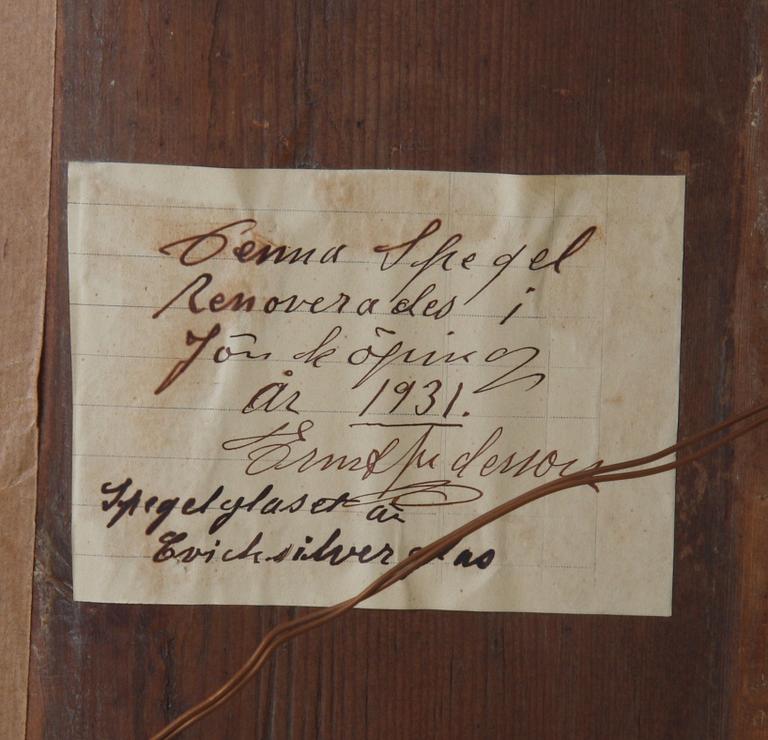 Denna Spegel
Renoverades i
Jönköping
år 1931.
Ernst Anderson
Spegelglaset är
Qvicksilverglas